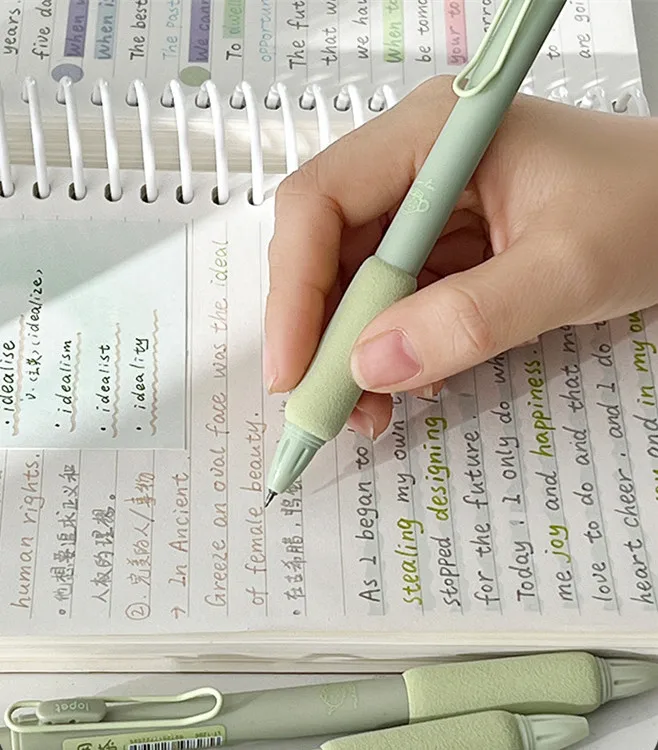 years.
five da
When w
When i
The best
The past
We cann
To dwell
opportun
The fut
that wi
we hav
When to
be tomo
your to
to
are goi
• idealise
v.
idealize,
• idealism
• idealist
• ideality
human rights.
• 他想要追求正义和
人权的理想。
②. 完美的人/事物
→ In Ancient
Greeze an oval face was the ideal
of female beauty.
• 在古希腊,鸭
As I began to
stealing my own
stopped designing
for the future.
Today, I only do wh
me joy and happiness.
love to do and that m
heart cheer. and I do
way and in my ow
lopet